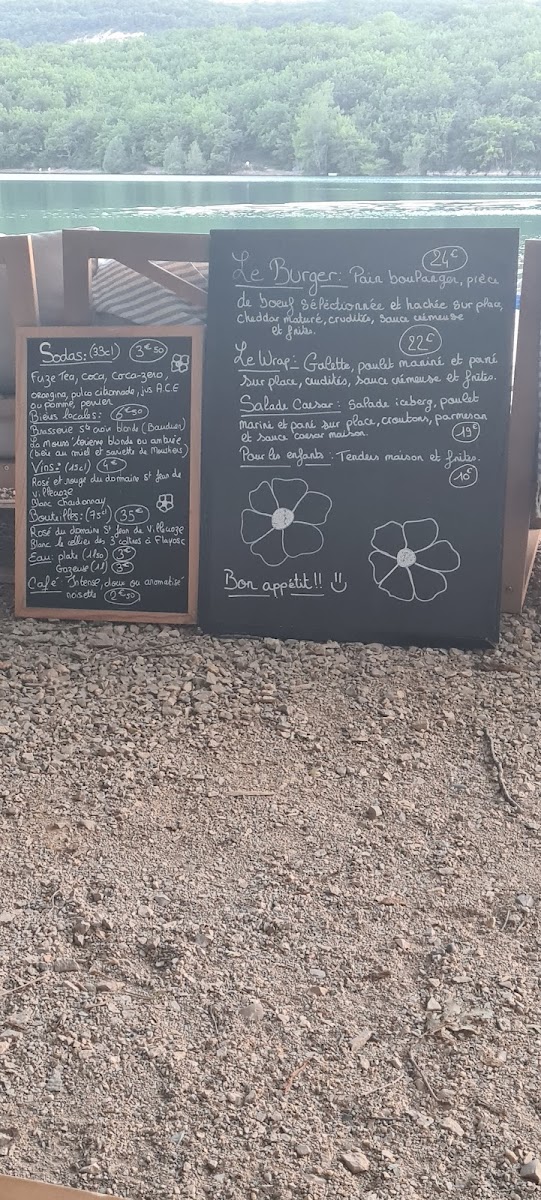 Sodas: (33cl) 3€50
Fuze Tea, coca, coca-zero,
orangina, pulco citronnade, jus A.C.E
ou pomme, perrier
Bières locales: 6€50
Brasserie St croix blonde (Bauduen)
La mouss'tierene blonde ou ambrée
(bière au miel et sariette de Moustiers)
Vins: (15cl) 4€
Rosé et rouge du domaine St Jean de
Villecroze
Blanc chardonnay
Bouteilles: (75cl) 35€
Rosé du domaine St Jean de Villecroze
Blanc le cellier des 3 collines à Flayosc
Eau: plate (1l50) 3€
Gazeuse (1l) 3€
Café: Intense, doux ou aromatisé
noisette 2€50
Le Burger: 24€ Pain boulanger, pièce
de boeuf séléctionnée et hachée sur place,
cheddar maturé, crudités, sauce crémeuse
et frites.
22€
Le Wrap: Galette, poulet mariné et pané
sur place, crudités, sauce crémeuse et frites.
Salade Caesar: Salade iceberg, poulet
mariné et pané sur place, croutons, parmesan
et sauce caesar maison. 19€
Pour les enfants: Tenders maison et frites.
10€
Bon appétit!!